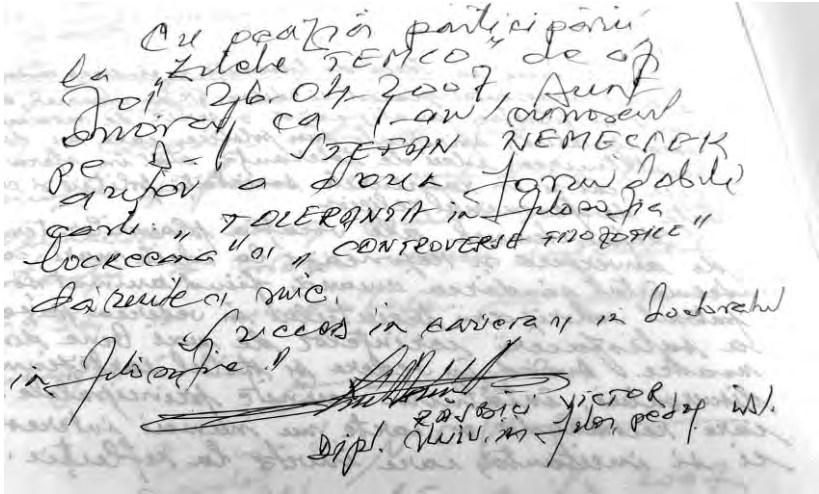 Cu ocazia participării
la „Zilele TEMCO" de azi
Joi 26.04.2007, sunt
onorat ca l-am cunoscut
pe D-l STEFAN NEMECSEK
autor a doua formidabile
carti: „TOLERANTA in filosofia
lockeeana" si „CONTROVERSE FILOZOFICE"
dăruite si mie.
Succes in cariera si in doctoratul
in filosofie!
VICTOR
Dipl. Univ. in filos, pedag